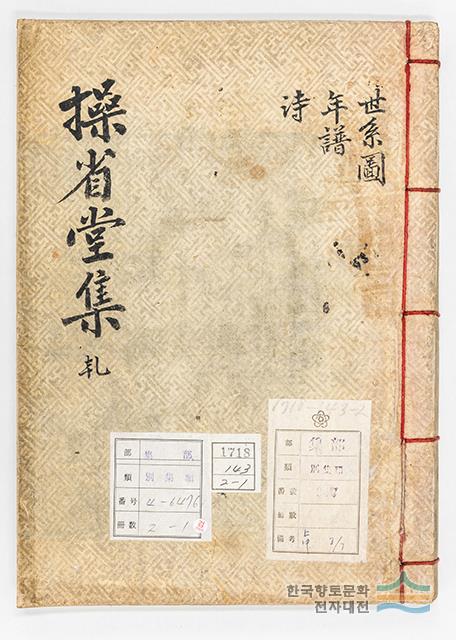 世系圖
年譜
詩
操省堂集 乹
部 集部
類 別集類
番号 4-6476
冊数 2-1
1718
143
2-1
部 集部
類 別集類
番號
冊數
備考
한국향토문화
전자대전